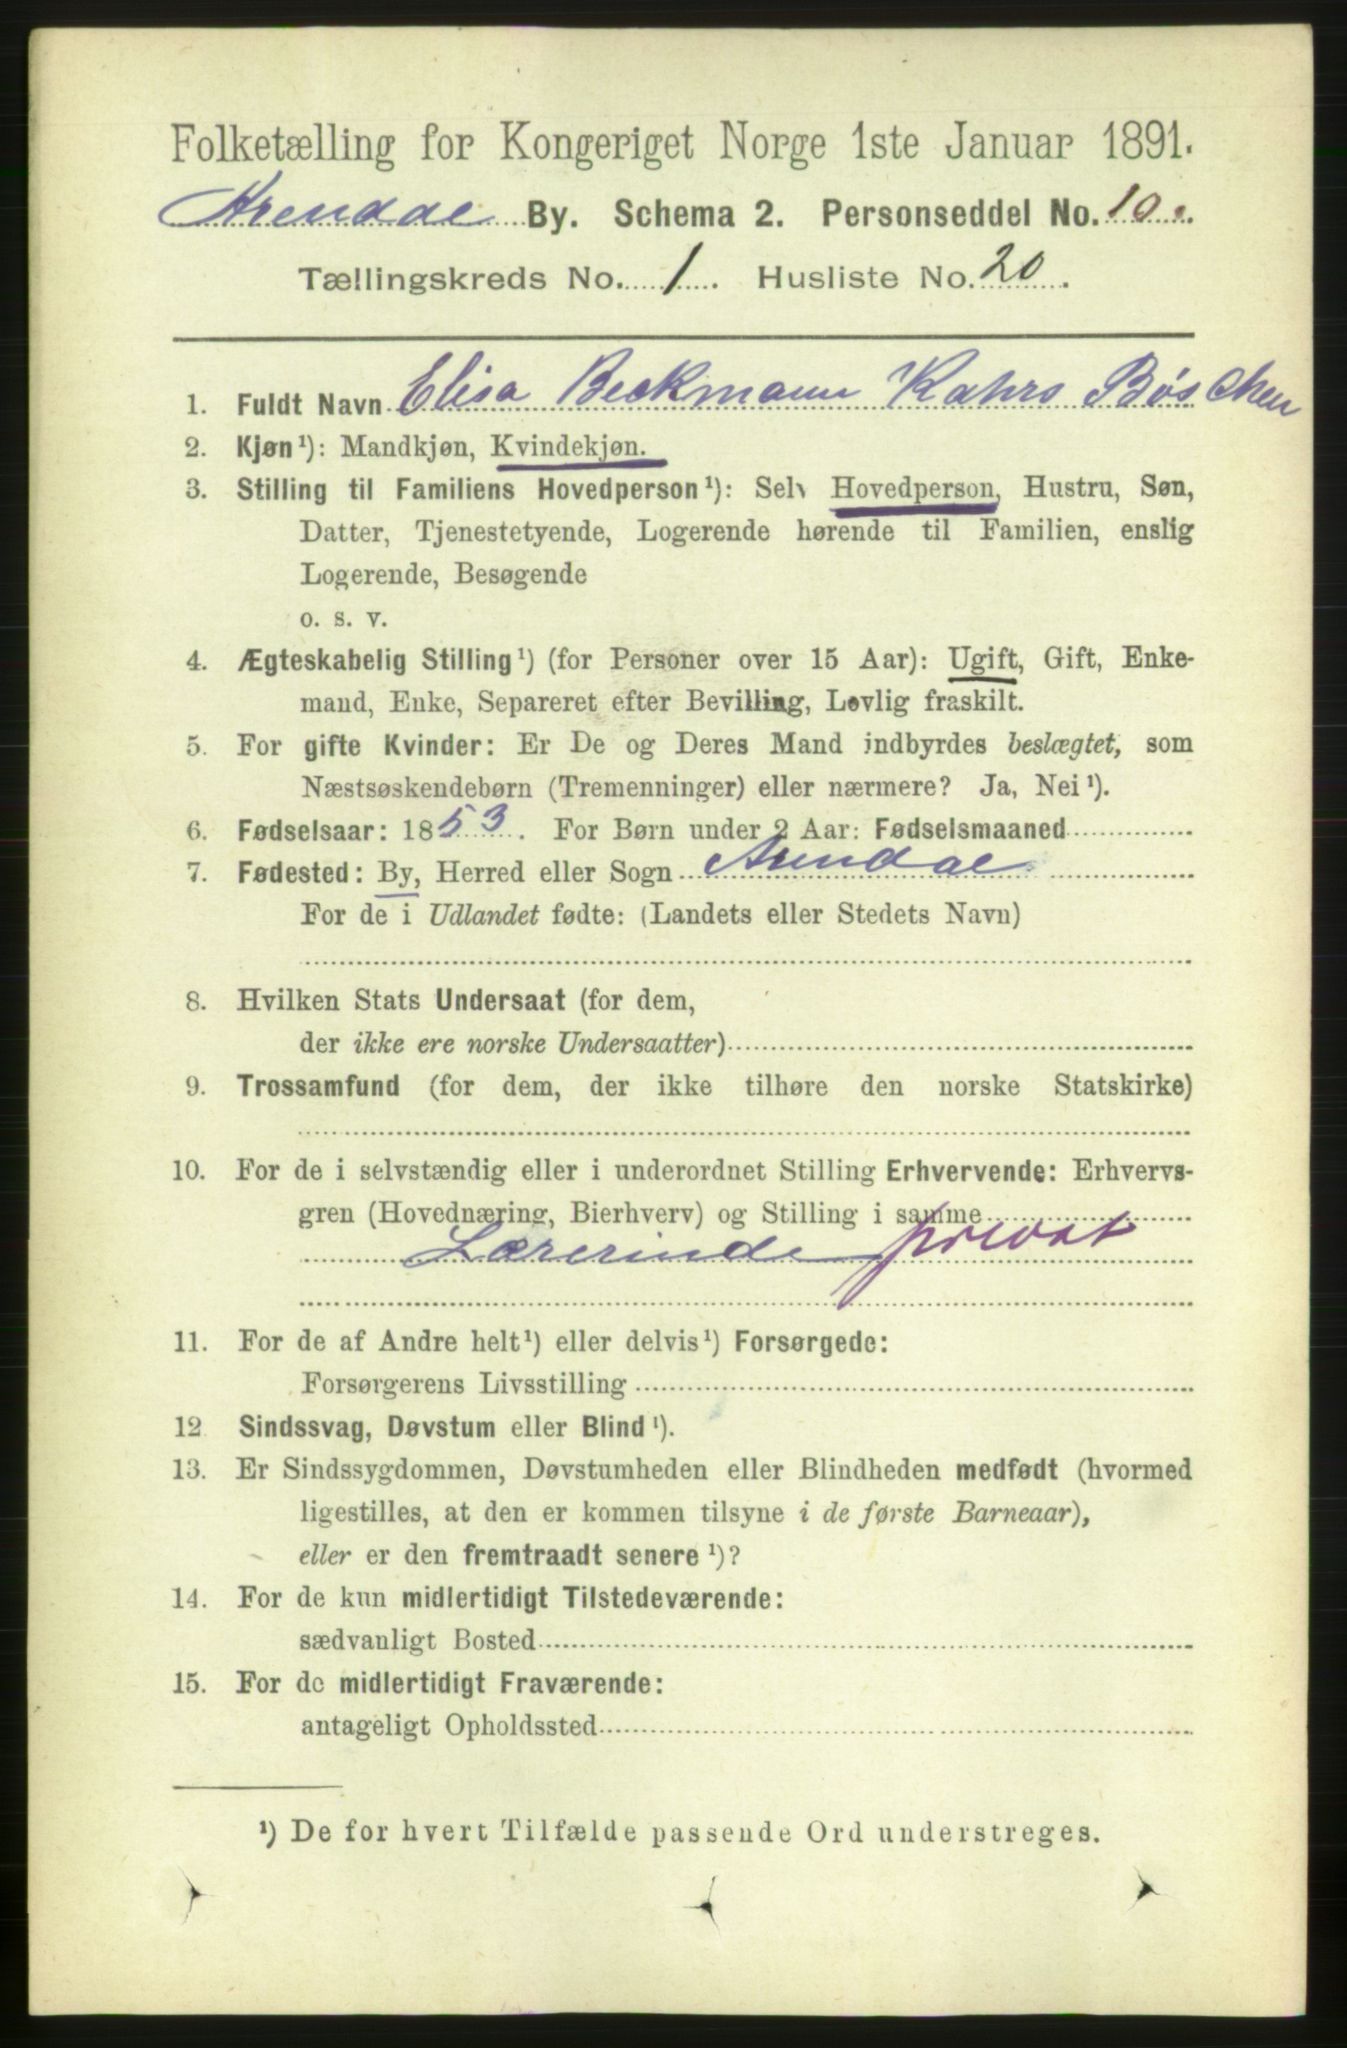 Folketælling for Kongeriget Norge 1ste Januar 1891.
Arendal By. Schema 2. Personseddel No. 10.
Tællingskreds No. 1. Husliste No. 20.
1. Fuldt Navn Elisa Beckmann Kahrs Bøschen
2. Kjøn¹): Mandkjøn, Kvindekjøn.
3. Stilling til Familiens Hovedperson¹): Selv Hovedperson, Hustru, Søn,
Datter, Tjenestetyende, Logerende hørende til Familien, enslig
Logerende, Besøgende
o. s. v.
4. Ægteskabelig Stilling¹) (for Personer over 15 Aar): Ugift, Gift, Enke-
mand, Enke, Separeret efter Bevilling, Lovlig fraskilt.
5. For gifte Kvinder: Er De og Deres Mand indbyrdes beslægtet, som
Næstsøskendebørn (Tremenninger) eller nærmere? Ja, Nei¹).
6. Fødselsaar: 1853. For Børn under 2 Aar: Fødselsmaaned
7. Fødested: By, Herred eller Sogn Arendal
For de i Udlandet fødte: (Landets eller Stedets Navn)
8. Hvilken Stats Undersaat (for dem,
der ikke ere norske Undersaatter)
9. Trossamfund (for dem, der ikke tilhøre den norske Statskirke)
10. For de i selvstændig eller i underordnet Stilling Erhvervende: Erhvervs-
gren (Hovednæring, Bierhverv) og Stilling i samme
Lærerinde privat
11. For de af Andre helt¹) eller delvis¹) Forsørgede:
Forsørgerens Livsstilling
12 Sindssvag, Døvstum eller Blind¹).
13. Er Sindssygdommen, Døvstumheden eller Blindheden medfødt (hvormed
ligestilles, at den er kommen tilsyne i de første Barneaar),
eller er den fremtraadt senere¹)?
14. For de kun midlertidigt Tilstedeværende:
sædvanligt Bosted
15. For de midlertidigt Fraværende:
antageligt Opholdssted
¹) De for hvert Tilfælde passende Ord understreges.